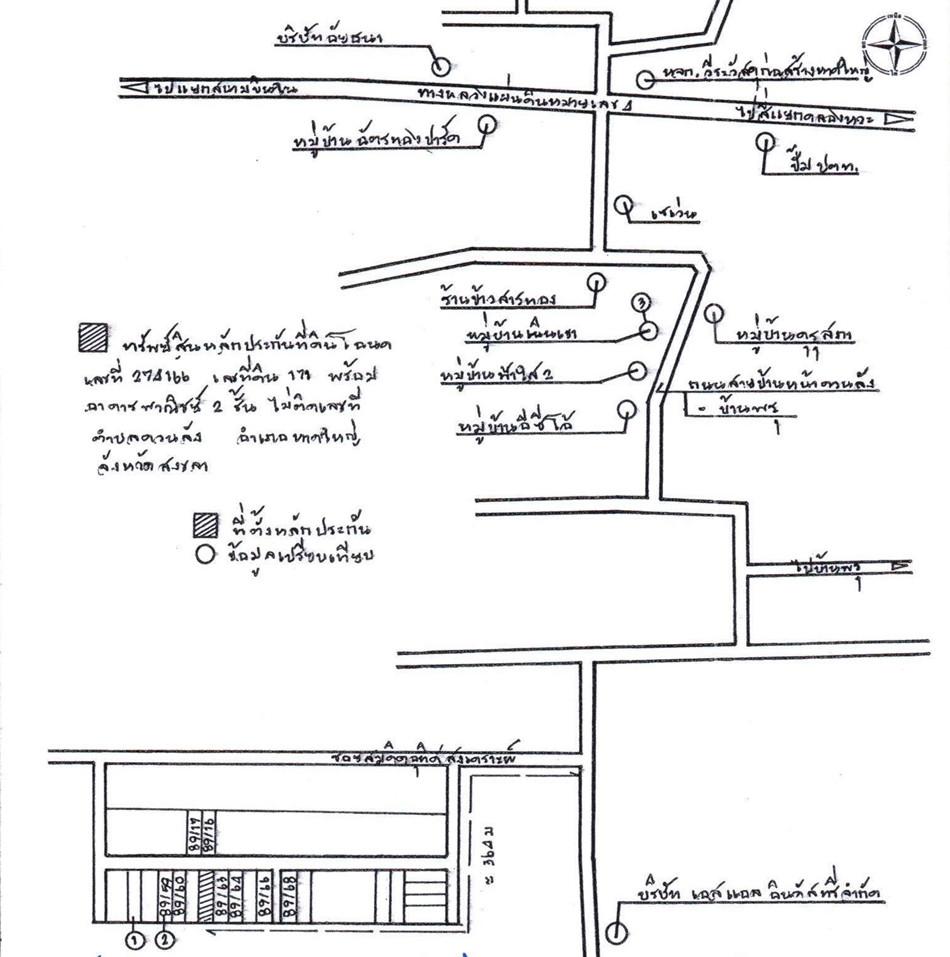 บริษัท ฉัยธนา
หจก. วีระวัสดุก่อสร้างหาดใหญ่
ไปแยกสนามบินใน
ทางหลวงแผ่นดินหมายเลข 4
ไปสี่แยกคลองหวะ
หมู่บ้าน ฉัตรทองปาร์ค
ปั๊ม ปตท.
เซเว่น
ร้านข้าวสารทอง
3
หมู่บ้านเนินเขา
หมู่บ้านดรุสภา
ทรัพย์สินหลักประกันที่ดินโฉนด
เลขที่ 274166 เลขที่ดิน 171 พร้อม
อาคารพาณิชย์ 2 ชั้น ไม่ติดเลขที่
ตำบลควนลัง อำเภอหาดใหญ่
จังหวัดสงขลา
หมู่บ้านฟ้าใส 2
ถนนสายบ้านหน้าควนลัง
- บ้านพรุ
หมู่บ้านอีซี่โฮ้
ที่ตั้งหลักประกัน
ข้อมูลเปรียบเทียบ
ไปบ้านพรุ
ซอยสมคิดอุทิศสงเคราะห์
89/17
89/16
≈ 364 ม
89/59
89/60
89/63
89/64
89/66
89/68
1
2
บริษัท เอสแอล อินดัสทรี่จำกัด